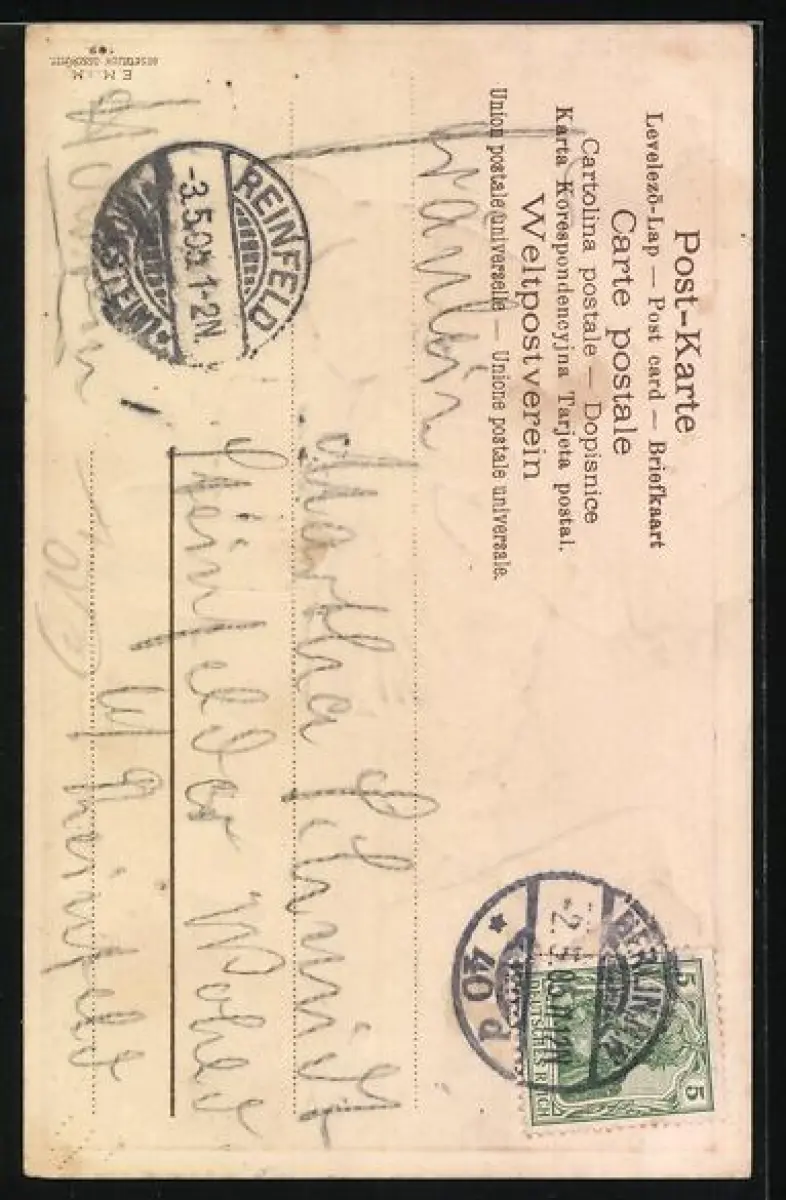 Post-Karte
Levelező-Lap — Post card — Briefkaart
Carte postale
Cartolina postale — Dopisnice
Karta Korespondencyjna Tarjeta postal.
Weltpostverein
Union postale universelle — Unione postale universale.
5
5
DEUTSCHES REICH
BERLIN
-2.5.05.11-12N
* 40 d
Fräulein
Martha Schmidt
Reinfelder
b/ Reinfeld
REINFELD
-3.5.05 1-2N.
STEIN
E.M.i.M